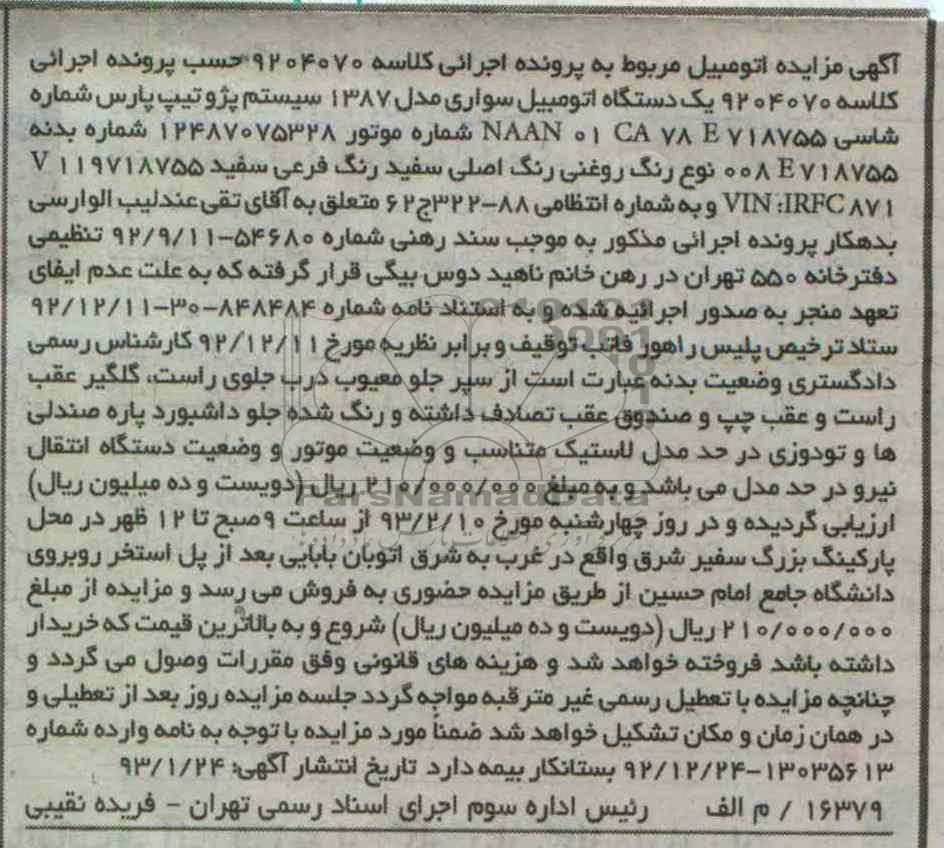 آگهی مزایده اتومبیل مربوط به پرونده اجرائی کلاسه ۹۲۰۴۰۷۰ حسب پرونده اجرائی
کلاسه ۹۲۰۴۰۷۰ یک دستگاه اتومبیل سواری مدل ۱۳۸۷ سیستم پژو تیپ پارس شماره
شاسی NAAN ۰۱ CA ۷۸ E ۷۱۸۷۵۵ شماره موتور ۱۲۴۸۷۰۷۵۳۲۸ شماره بدنه
۰۰۸ E ۷۱۸۷۵۵ نوع رنگ روغنی رنگ اصلی سفید رنگ فرعی سفید V ۱۱۹۷۱۸۷۵۵
VIN :IRFC ۸۷۱ و به شماره انتظامی ۸۸-۳۲۲ج۶۲ متعلق به آقای تقی عندلیب الوارسی
بدهکار پرونده اجرائی مذکور به موجب سند رهنی شماره ۵۴۶۸۰-۹۲/۹/۱۱ تنظیمی
دفترخانه ۵۵۰ تهران در رهن خانم ناهید دوس بیگی قرار گرفته که به علت عدم ایفای
تعهد منجر به صدور اجرائیه شده و به استناد نامه شماره ۸۴۸۴۸۴-۳۰-۹۲/۱۲/۱۱
ستاد ترخیص پلیس راهور فاتب توقیف و برابر نظریه مورخ ۹۲/۱۲/۱۱ کارشناس رسمی
دادگستری وضعیت بدنه عبارت است از سپر جلو معیوب درب جلوی راست، گلگیر عقب
راست و عقب چپ و صندوق عقب تصادف داشته و رنگ شده جلو داشبورد پاره صندلی
ها و تودوزی در حد مدل لاستیک متناسب و وضعیت موتور و وضعیت دستگاه انتقال
نیرو در حد مدل می باشد و به مبلغ ۲۱۰/۰۰۰/۰۰۰ ریال (دویست و ده میلیون ریال)
ParsNamadData
ارزیابی گردیده و در روز چهارشنبه مورخ ۹۳/۲/۱۰ از ساعت ۹صبح تا ۱۲ ظهر در محل
پارکینگ بزرگ سفیر شرق واقع در غرب به شرق اتوبان بابایی بعد از پل استخر روبروی
دانشگاه جامع امام حسین از طریق مزایده حضوری به فروش می رسد و مزایده از مبلغ
۲۱۰/۰۰۰/۰۰۰ ریال (دویست و ده میلیون ریال) شروع و به بالاترین قیمت که خریدار
داشته باشد فروخته خواهد شد و هزینه های قانونی وفق مقررات وصول می گردد و
چنانچه مزایده با تعطیل رسمی غیر مترقبه مواجه گردد جلسه مزایده روز بعد از تعطیلی و
در همان زمان و مکان تشکیل خواهد شد ضمناً مورد مزایده با توجه به نامه وارده شماره
۱۳۰۳۵۶۱۳-۹۲/۱۲/۲۴ بستانکار بیمه دارد. تاریخ انتشار آگهی: ۹۳/۱/۲۴
۱۶۳۷۹ / م الف رئیس اداره سوم اجرای اسناد رسمی تهران - فریده نقیبی